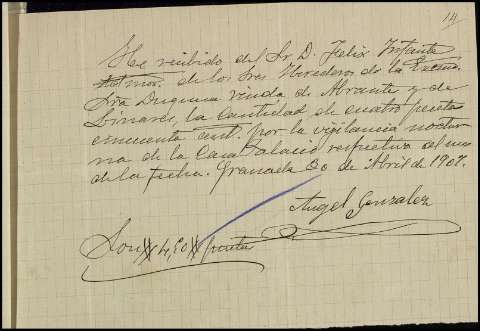 14
He recibido del Sr. D. Felix Infante
Admor. de los Sres Herederos de la Excma.
Sra Duquesa viuda de Abrante y de
Linares, la cantidad de cuatro peseta
cincuenta cent. por la vigilancia noctur
na de la Casa Palacio respectiva al mes
de la fecha. Granada 30 de Abril de 1907.
Angel Gonzalez
Son # 4,50 # pesetas